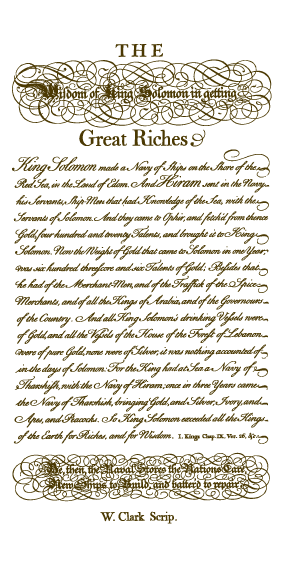 THE
Wisdom of King Solomon in getting
Great Riches
King Solomon made a Navy of Ships on the Shore of the
Red Sea, in the Land of Edom. And Hiram sent in the Navy
his Servants, Ship Men that had Knowledge of the Sea, with the
Servants of Solomon. And they came to Ophir, and fetch'd from thence
Gold, four hundred and twenty Talents, and brought it to King
Solomon. Now the Weight of Gold that came to Solomon in one Year,
was six hundred threescore and six Talents of Gold; Besides that
he had of the Merchant-Men, and of the Traffick of the Spice
Merchants, and of all the Kings of Arabia, and of the Governours
of the Country. And all King Solomon's drinking Vessels were
of Gold, and all the Vessels of the House of the Forest of Lebanon
were of pure Gold, none were of Silver; it was nothing accounted of
in the days of Solomon. For the King had at Sea a Navy of
Tharshish, with the Navy of Hiram; once in three Years came
the Navy of Tharshish, bringing Gold, and Silver, Ivory, and
Apes, and Peacocks. So King Solomon exceeded all the Kings
of the Earth for Riches, and for Wisdom. I. Kings Chap. IX. Ver. 26, &c.
Be, then, the Naval Stores the Nations Care,
New Ships to Build, and batter'd to repair.
W. Clark Scrip.